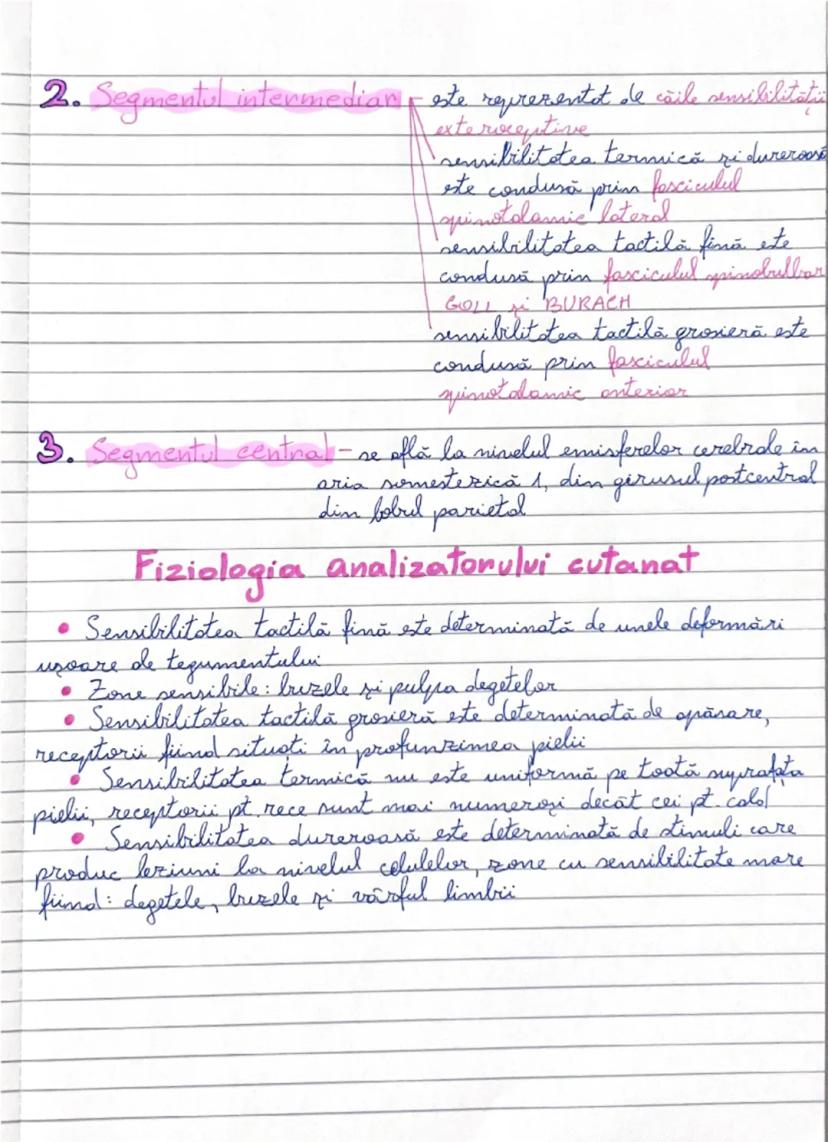 2. Segmentul intermediar - este reprezentat de căile sensibilității
exteroceptive
sensibilitatea termică și dureroasă
este condusă prin fasciculul
spinotalamic lateral
sensibilitatea tactilă fină este
condusă prin fasciculul spinobulbar
GOLL și BURACH
sensibilitatea tactilă grosieră este
condusă prin fasciculul
spinotalamic anterior
3. Segmentul central - se află la nivelul emisferelor cerebrale în
aria somestezică 1, din girusul postcentral
din lobul parietal
Fiziologia analizatorului cutanat
• Sensibilitatea tactilă fină este determinată de unele deformări
ușoare ale tegumentului
• Zone sensibile: buzele și pulpa degetelor
• Sensibilitatea tactilă grosieră este determinată de apăsare,
receptorii fiind situați în profunzimea pielii
• Sensibilitatea termică nu este uniformă pe toată suprafața
pielii, receptorii pt. rece sunt mai numeroși decât cei pt. cald
• Sensibilitatea dureroasă este determinată de stimuli care
produc leziuni la nivelul celulelor, zone cu sensibilitate mare
fiind: degetele, buzele și vârful limbii